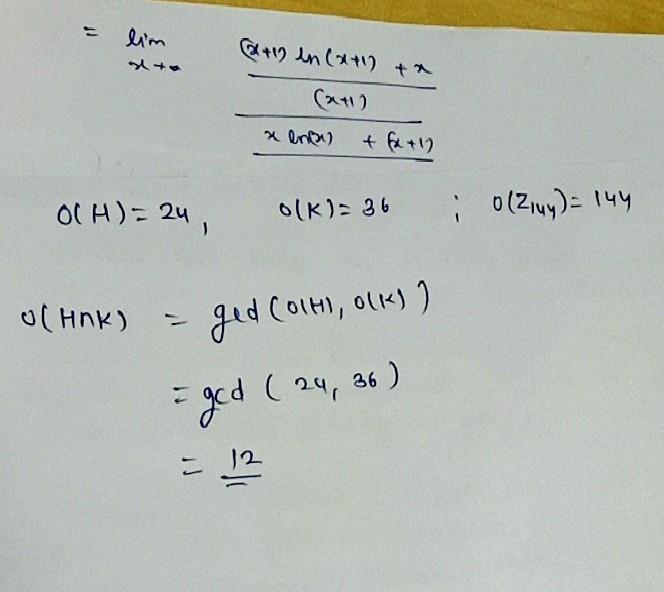 = lim (x+1) ln(x+1) + x
x→∞ (x+1)
x ln(x) + (x+1)
O(H) = 24, O(K) = 36 ; O(Z144) = 144
O(H∩K) = gcd (O(H), O(K))
= gcd (24, 36)
= 12